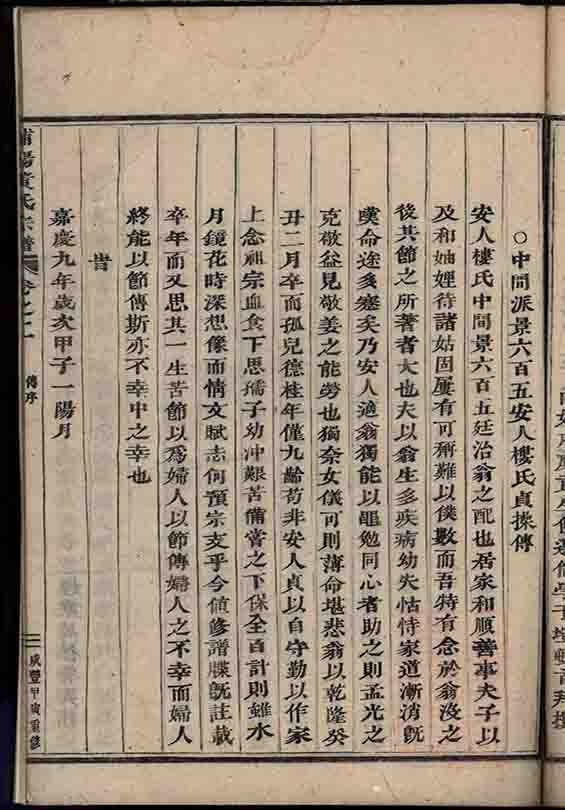 ○中間派景六百五安人樓氏貞操傳
安人樓氏中間景六百五廷治翁之配也居家和順善事夫子以
及和妯娌待諸姑固屢有可稱難以僕數而吾特有念於翁沒之
後其節之所著者大也夫以翁生多疾病幼失怙恃家道漸消旣
嘆命途多塞矣乃安人適翁獨能以黽勉同心者助之則孟光之
克敬益見敬姜之能勞也獨奈女儀可則薄命堪悲翁以乾隆癸
丑二月卒而孤兒德桂年僅九齡苟非安人貞以自守勤以作家
上念祖宗血食下思孺子幼冲艱苦備嘗之下保全百計則雖水
月鏡花時深想像而情文賦志何預宗支乎今値修譜牒旣註載
卒年而又思其一生苦節以爲婦人以節傳婦人之不幸而婦人
終能以節傳斯亦不幸中之幸也
旹
嘉慶九年歲次甲子一陽月
浦陽黃氏宗譜 卷之二 傳序 咸豐甲寅重修